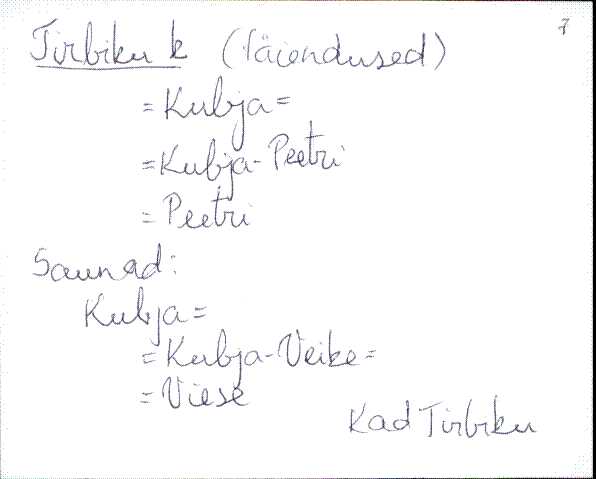 7
Tirbiku k (Täiendused)
=Kubja=
=Kubja-Peetri
=Peetri
Saunad:
Kubja=
=Kubja-Veike=
=Viese
Kad Tirbiku